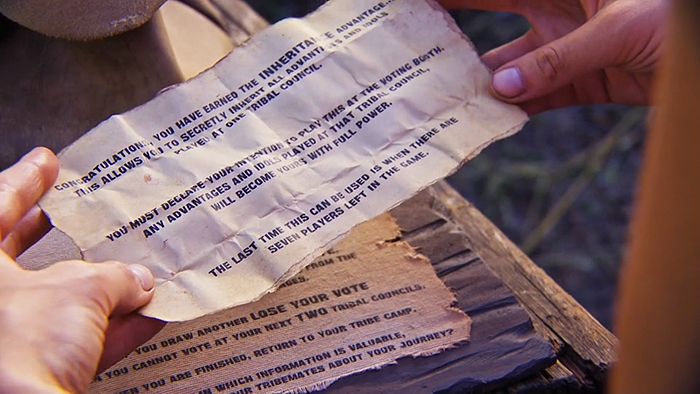 CONGRATULATIONS, YOU HAVE EARNED THE INHERITANCE ADVANTAGE.
THIS ALLOWS YOU TO SECRETLY INHERIT ALL ADVANTAGES AND IDOLS
PLAYED AT ONE TRIBAL COUNCIL.
YOU MUST DECLARE YOUR INTENTION TO PLAY THIS AT THE VOTING BOOTH.
ANY ADVANTAGES AND IDOLS PLAYED AT THAT TRIBAL COUNCIL,
WILL BECOME YOURS WITH FULL POWER.
THE LAST TIME THIS CAN BE USED IS WHEN THERE ARE
SEVEN PLAYERS LEFT IN THE GAME.
FROM THE
YOU DRAW ANOTHER LOSE YOUR VOTE
YOU CANNOT VOTE AT YOUR NEXT TWO TRIBAL COUNCILS.
WHEN YOU ARE FINISHED, RETURN TO YOUR TRIBE CAMP.
IN WHICH INFORMATION IS VALUABLE,
YOUR TRIBEMATES ABOUT YOUR JOURNEY?